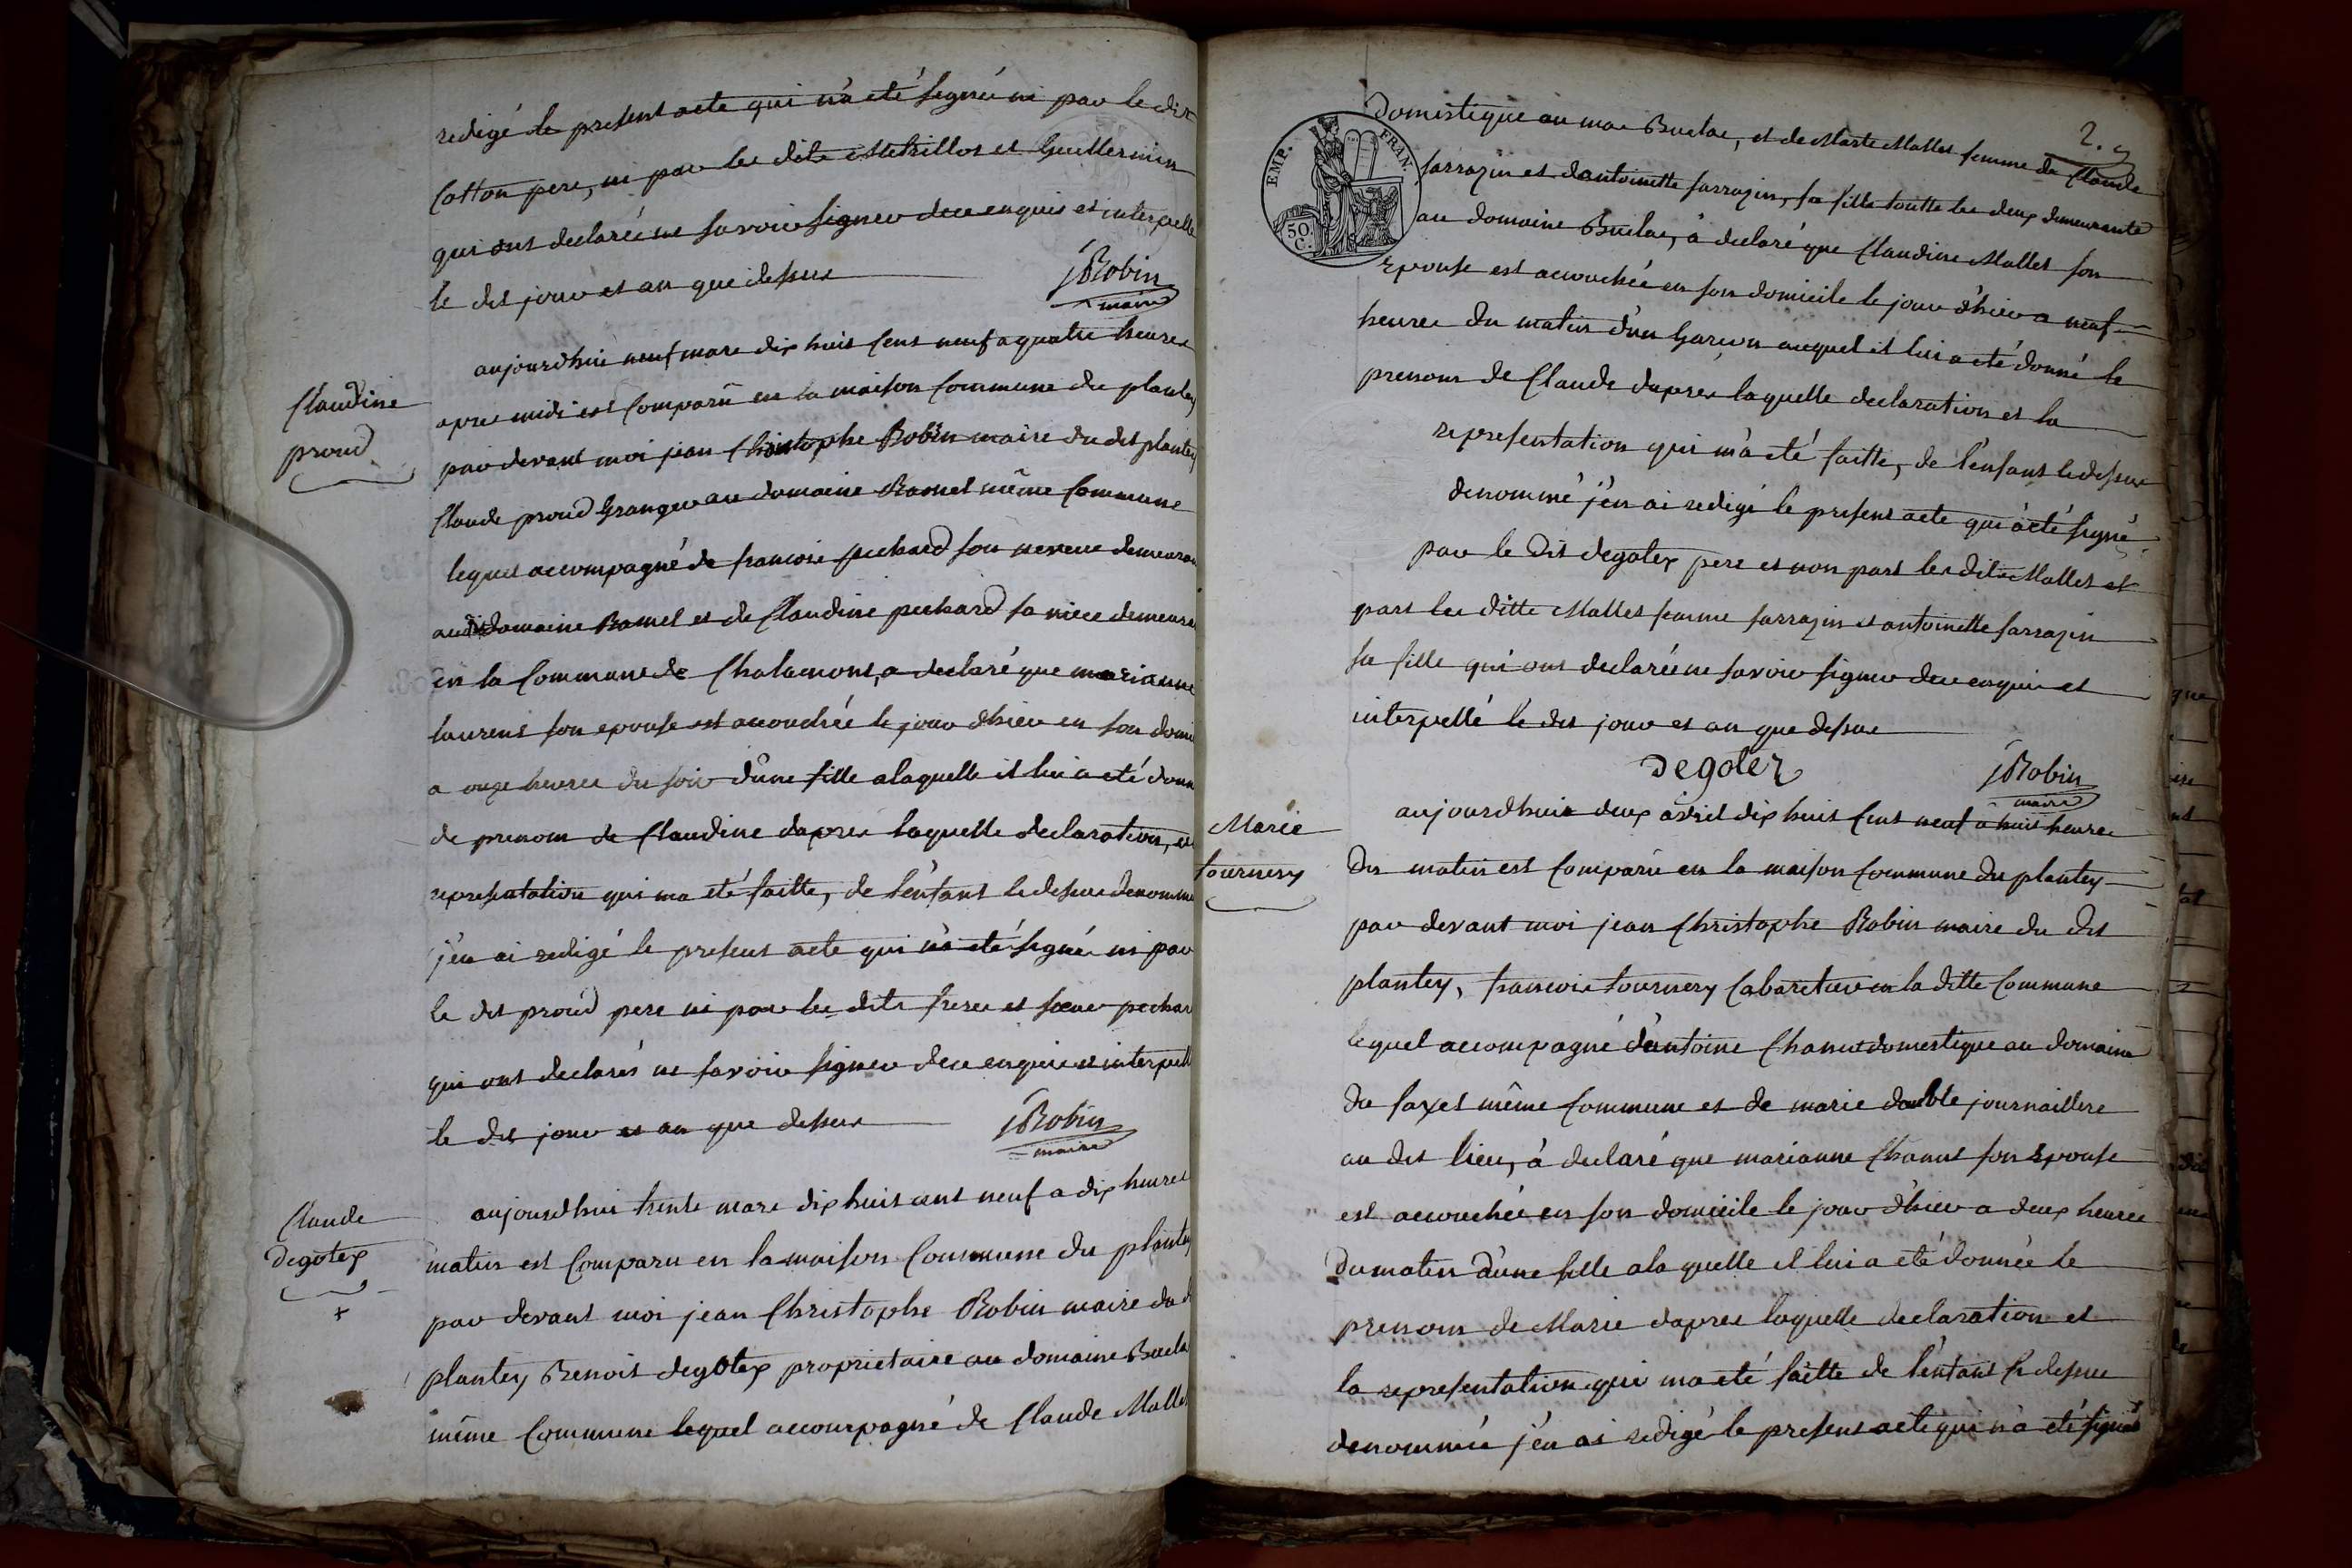 redigé le present acte qui n'a eté signé ni par le dit
Cotton pere, ni par les dits Metrillot et Guillermin
qui ont declaré ne savoir signer de ce enquis et interpellé
le dit jour et an que dessus
JRobin
maire
Claudine
proud
aujourdhui neuf mars dix huit cent neuf a quatre heures
apres midi est Comparû en la maison Commune du plantey
par devant moi jean Christophe Robin maire du dit plantey
Claude proud Granger au domaine Ramel même Commune
lequel accompagné de francois pechard son neveu demeuran
audit domaine Ramel et de Claudine pechard sa niece demeura
en la Commune de Chalamont, a declaré que marianne
laurent son epouse est accouchée le jour dhier en son domi
a onze heures du soir d'une fille alaquelle il lui a eté donn
de prenom de Claudine dapres laquelle declaration, et
representation qui ma eté faitte, de l'enfant cy dessus denommé
j'en ai redigé le present acte qui n'a eté signé ni par
le dit proud pere ni par les dits frere et soeur pechar
qui ont declarés ne savoir signer de ce enquis et interpell
le dit jour et an que dessus
JRobin
maire
Claude
Degotex
+
aujourdhui trente mars dix huit cent neuf a dix heures
matin est Comparu en la maison Commune du plantey
par devant moi jean Christophe Robin maire du d
plantey Benoit degotex proprietaire au domaine Bucla
même Commune lequel accompagné de Claude Mallet
2.
EMP. FRAN.
50.
C.
Domestique au mas Buclas, et de Marte Mallet femme de Claude
sarrazin et dantoinette sarrazin, sa fille toutte les deux demeurante
au domaine Buclas, a declaré que Claudine Mallet son
Epouse est accouchée en son domicile le jour d'hier a neuf
heures du matin d'un Garcon auquel il lui a eté donné le
prenom de Claude dapres laquelle declaration et la
representation qui m'a eté faitte, de l'enfant cy dessus
denommé j'en ai redigé le present acte qui a eté signé
par le dit degotex pere et non part les dits Mallet et
part les ditte Mallet femme sarrazin et antoinette sarrazin
sa fille qui ont declarée ne savoir signer de ce enquis et
interpellé le dit jour et an que dessus
Degotez
JRobin
maire
Marie
tournery
aujourdhui deux avril dix huit Cent neuf a huit heures
du matin est Comparu en la maison Commune du plantey
par devant moi jean Christophe Robin maire du dit
plantey, francois tournery Cabaretier en la ditte Commune
lequel accompagné d'antoine Chanut domestique au domaine
du sayet même Commune et de marie double journaillere
au dit lieu, a declaré que marianne Chanut son Epouse
est accouchée en son domicile le jour d'hier a deux heures
du matin d'une fille ala quelle il lui a eté donnée le
prenom de Marie dapres laquelle declaration et
la representation qui ma eté faitte de l'enfant Cy dessus
denommée j'en ai redigé le present acte qui n'a eté signé